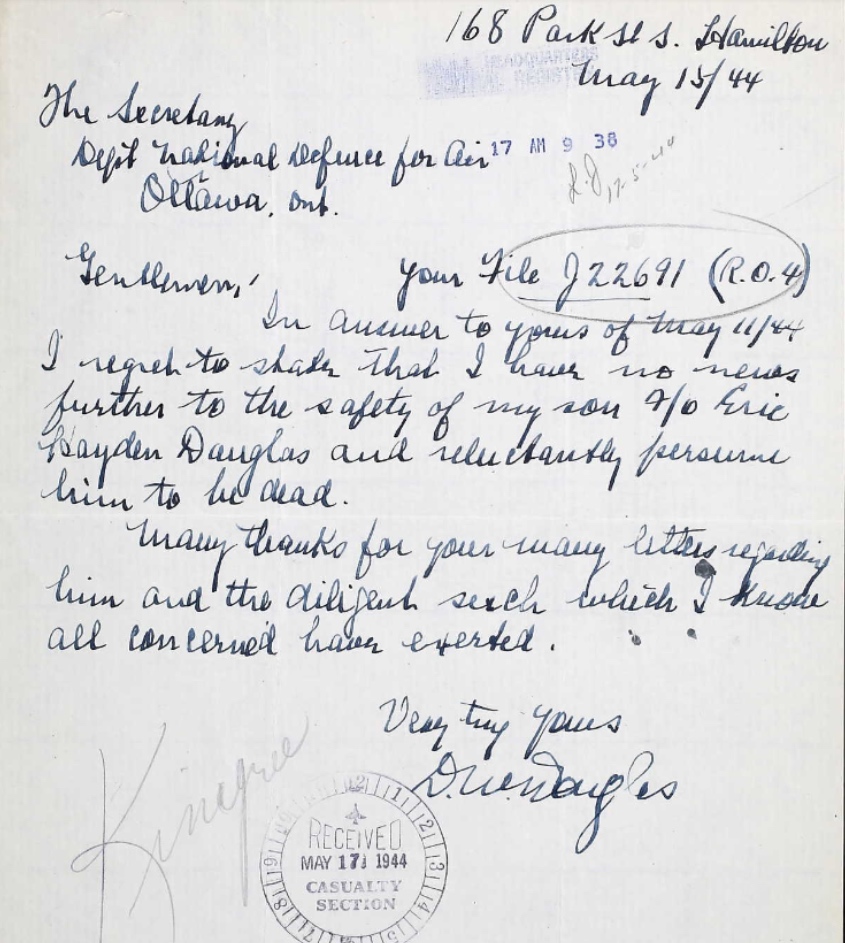 168 Park St S. Hamilton
HEADQUARTERS
REGISTRY
May 15/44
The Secretary
Dept National Defence for Air
17 AM 9 38
17-5-44
Ottawa, Ont.
Gentlemen, your File J22691 (R.O.4)
In answer to yours of May 11/44
I regret to state that I have no news
further to the safety of my son F/O Eric
Hayden Douglas and reluctantly persume
him to be dead.
Many thanks for your many letters regarding
him and the diligent serch which I know
all concerned have exerted.
Very try yours
Douglas
RECEIVED
MAY 17 1944
CASUALTY
SECTION